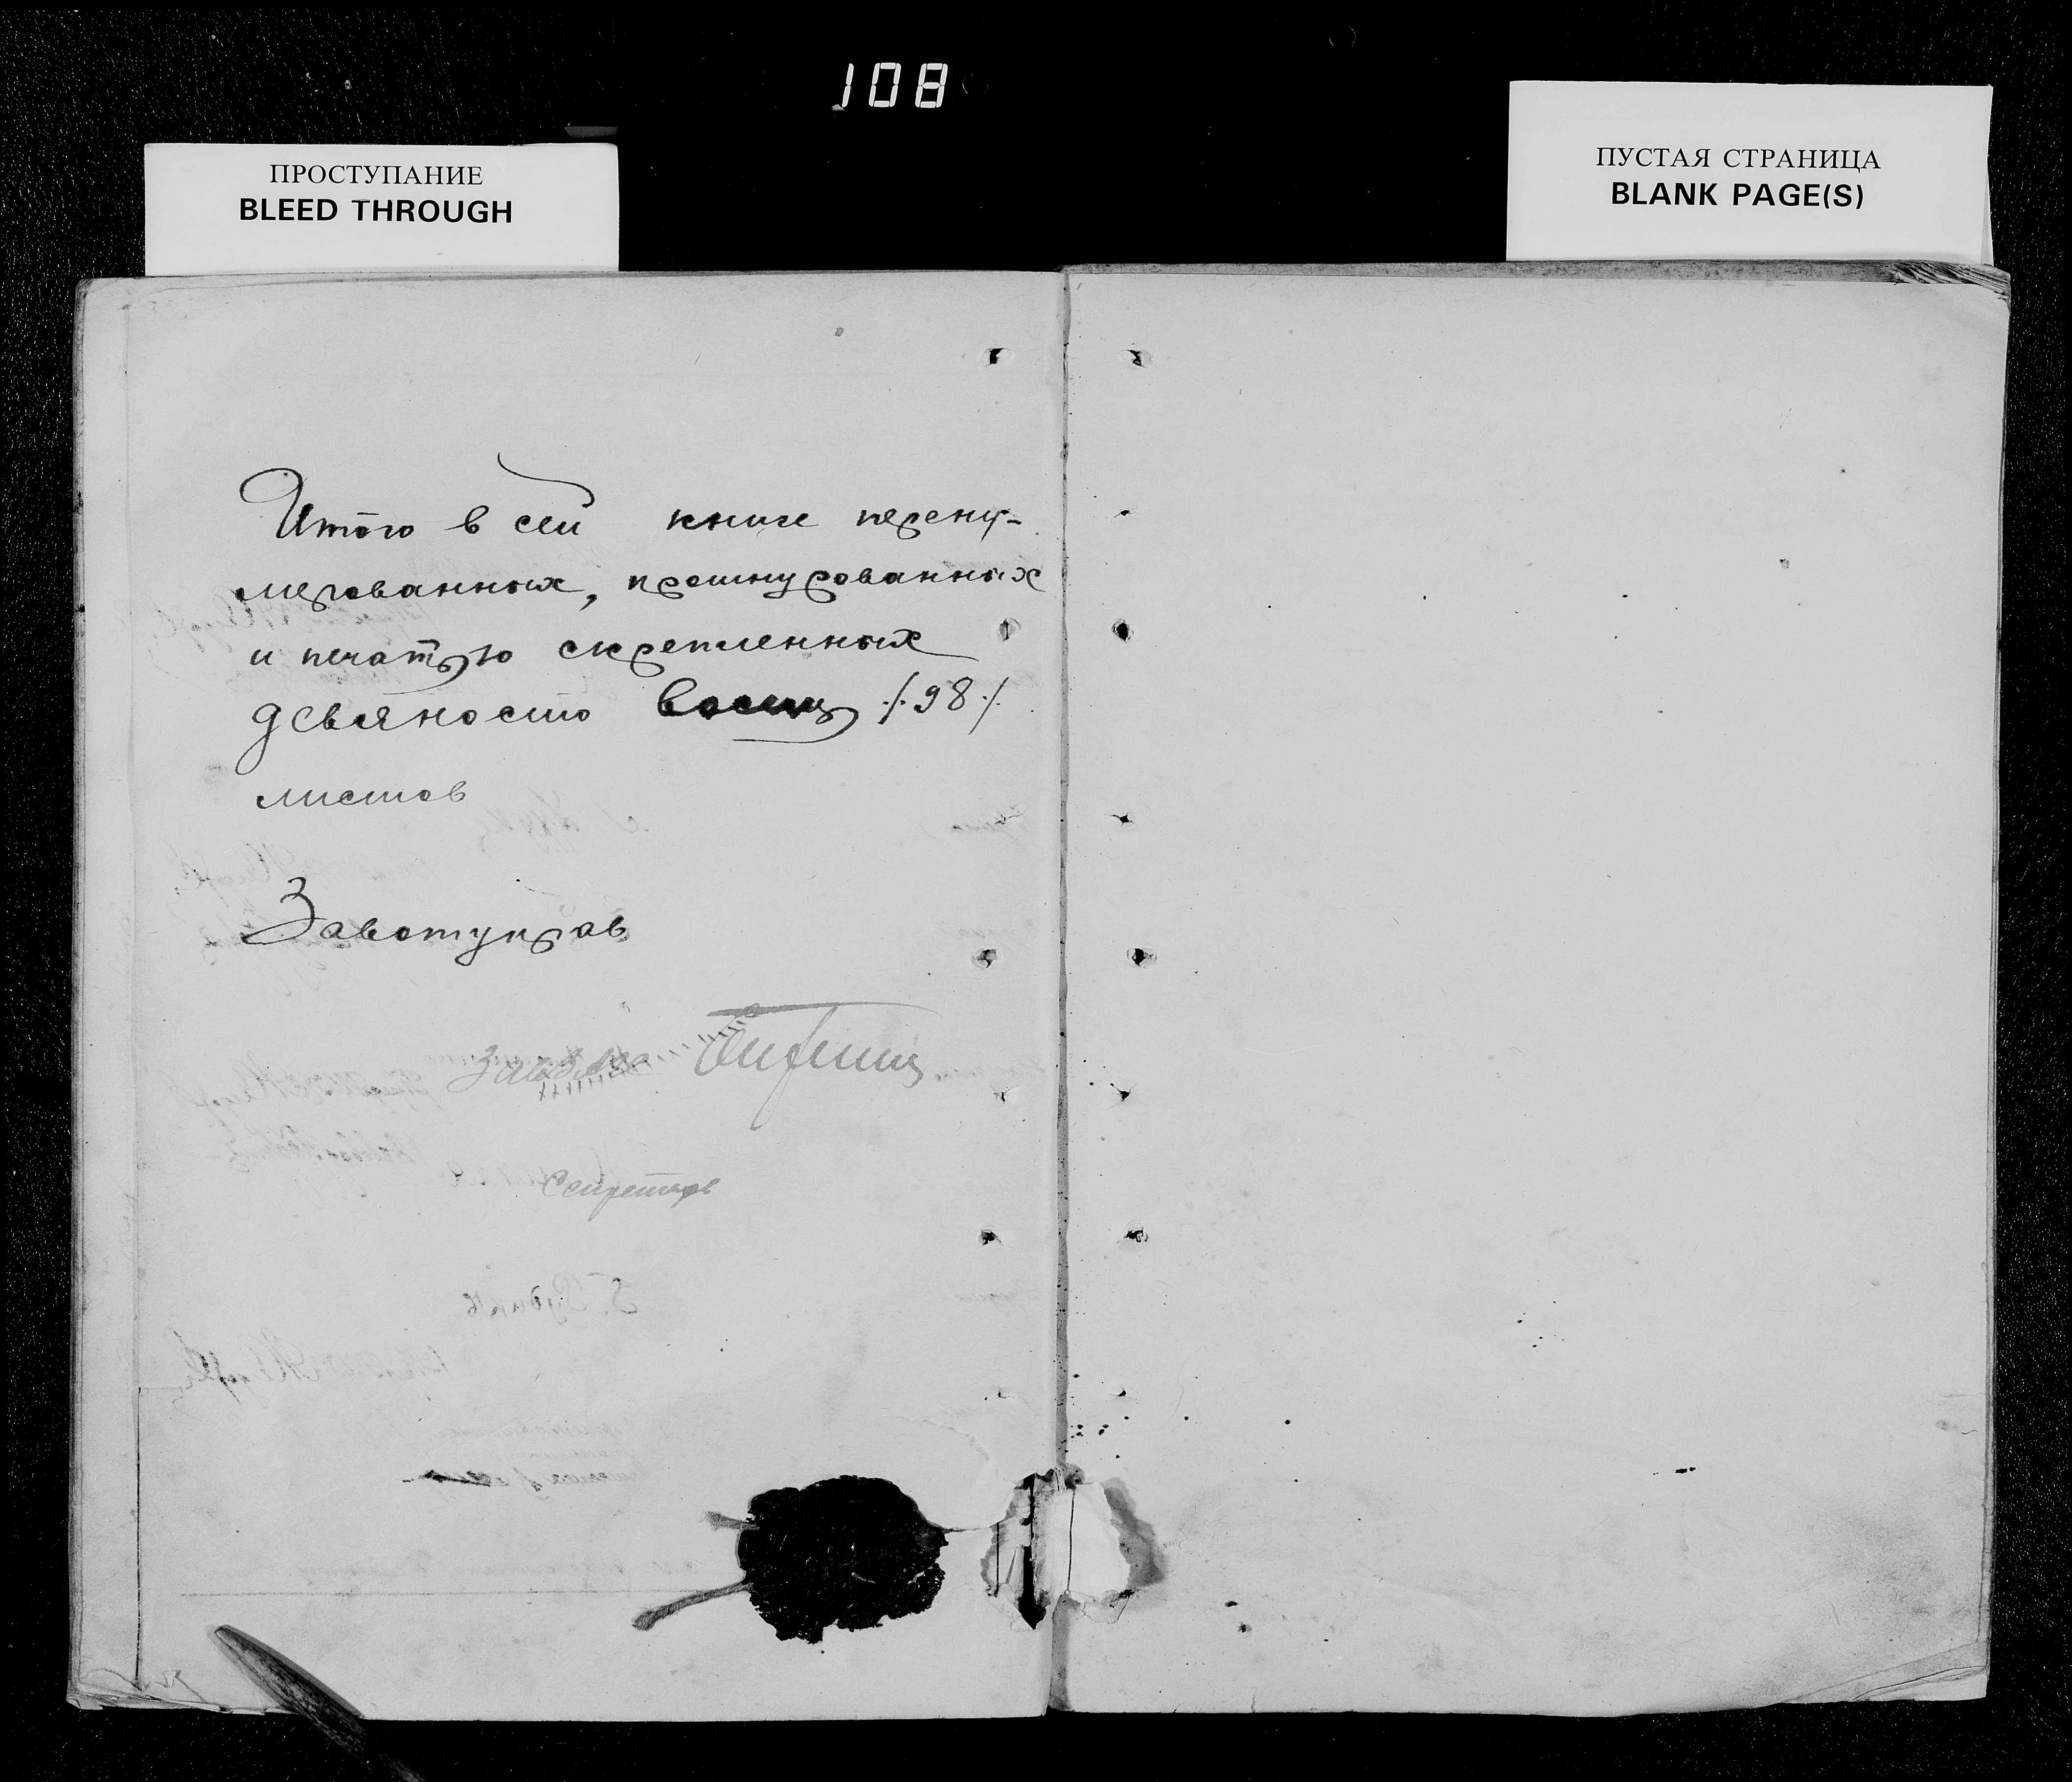 108
ПРОСТУПАНИЕ
BLEED THROUGH
ПУСТАЯ СТРАНИЦА
BLANK PAGE(S)
Итого в сей книге перену-
мерованных, прошнурованных
и печатью скрепленных
девяносто восемь /.98./
листов
Завотуправ
Секретарь